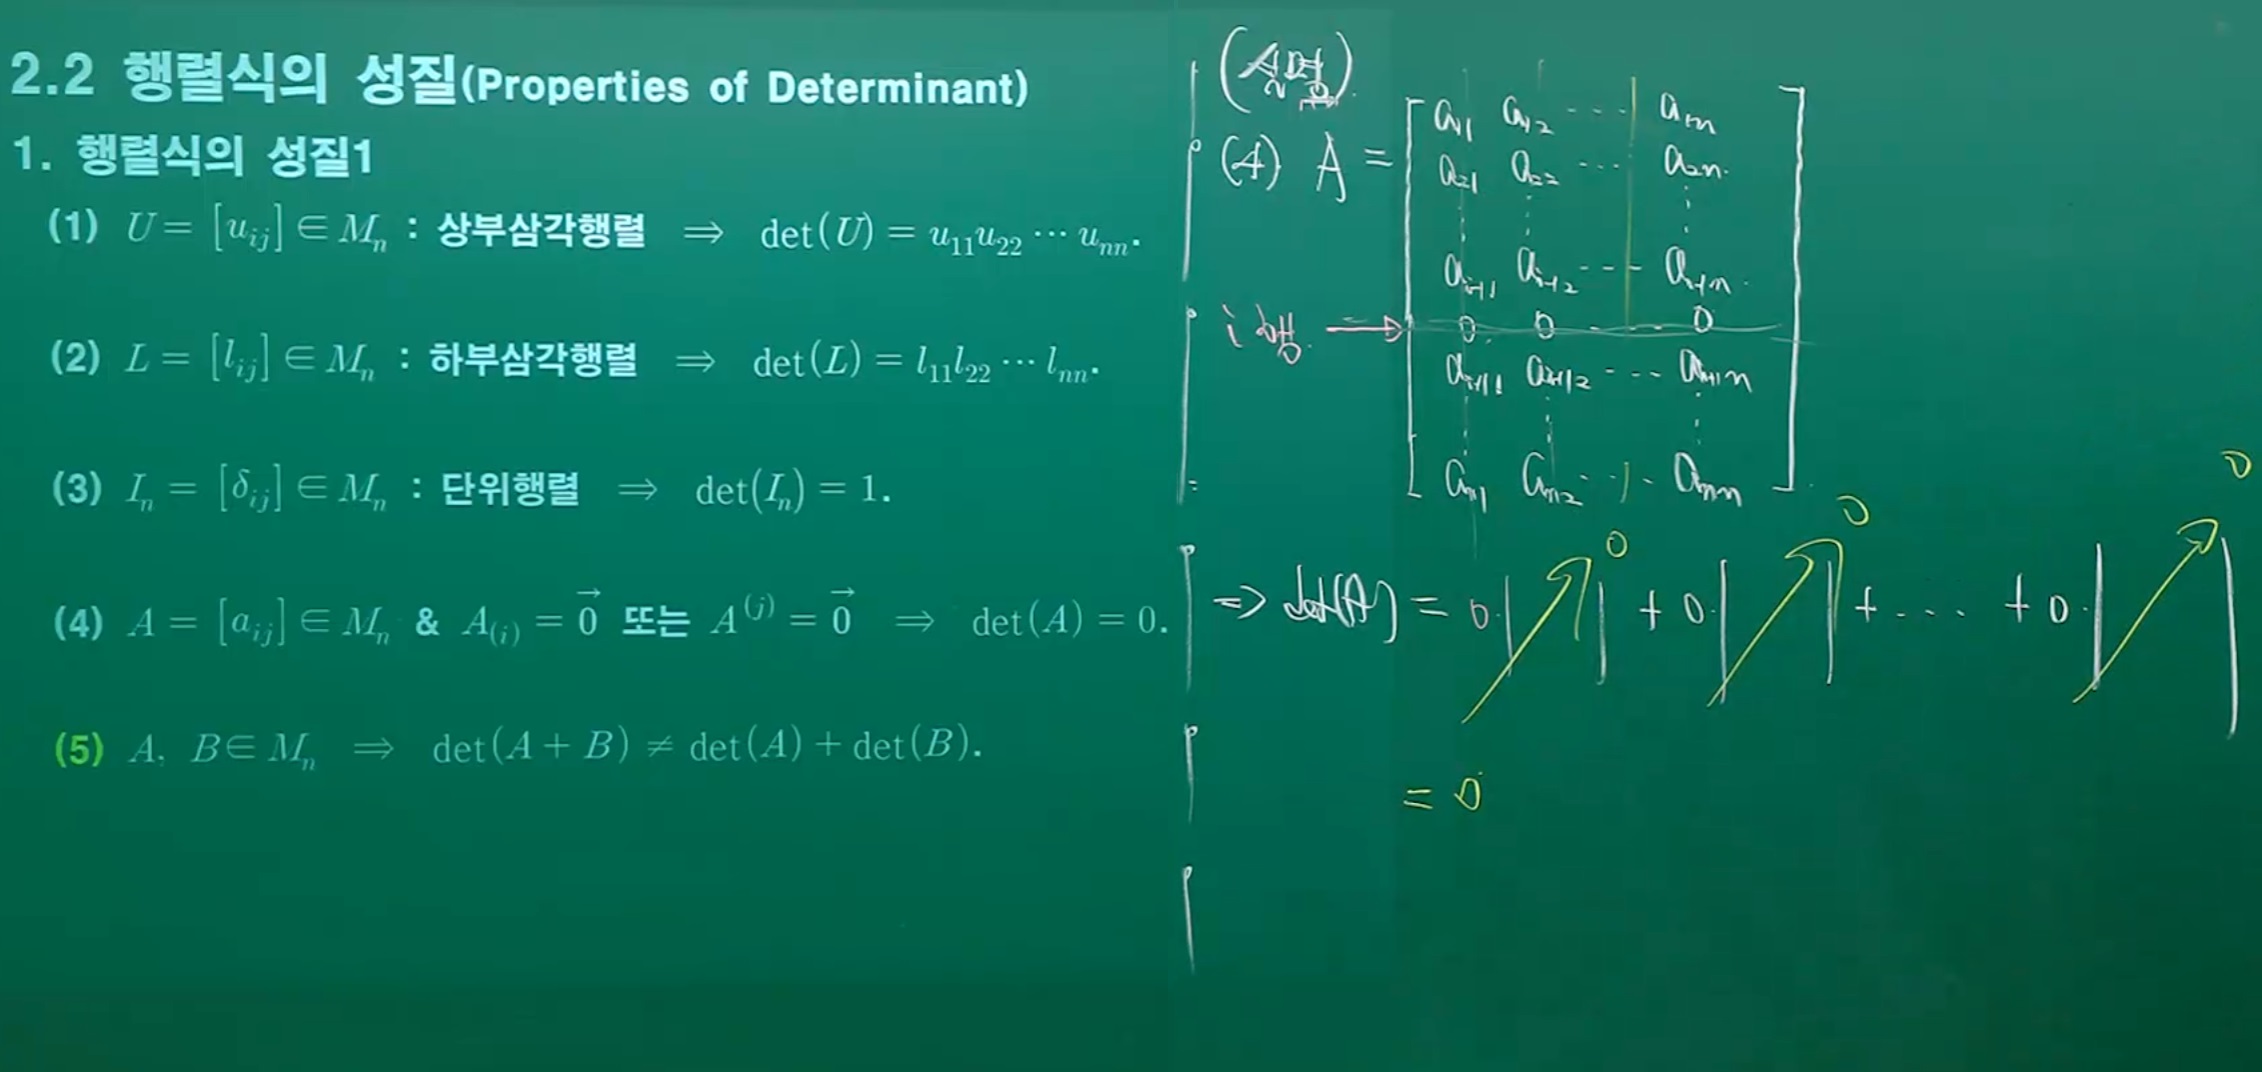 2.2 행렬식의 성질(Properties of Determinant)
1. 행렬식의 성질1
(1) U = [u_{ij}] ∈ M_n : 상부삼각행렬 ⇒ det(U) = u_{11}u_{22} ⋯ u_{nn}.
(2) L = [l_{ij}] ∈ M_n : 하부삼각행렬 ⇒ det(L) = l_{11}l_{22} ⋯ l_{nn}.
(3) I_n = [δ_{ij}] ∈ M_n : 단위행렬 ⇒ det(I_n) = 1.
(4) A = [a_{ij}] ∈ M_n & A_{(i)} = \vec{0} 또는 A^{(j)} = \vec{0} ⇒ det(A) = 0.
(5) A, B ∈ M_n ⇒ det(A + B) ≠ det(A) + det(B).
(4) A =
a_{11} a_{12} ⋯ a_{1n}
a_{21} a_{22} ⋯ a_{2n}
a_{i-11} a_{i-12} ⋯ a_{i-1n}
i행 → 0 0 ⋯ 0
a_{i+11} a_{i+12} ⋯ a_{i+1n}
a_{n1} a_{n2} ⋯ a_{nn}
⇒ det(A) = 0·| |^0 + 0·| |^0 + ⋯ + 0·| |^0
= 0